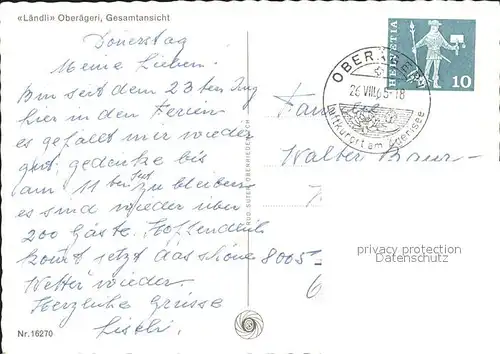 «Ländli» Oberägeri, Gesamtansicht
Donerstag
Meine Lieben.
Bin seit dem 23ten Aug
hier in den Ferien
es gefällt mir wieder
gut, gedenke bis
am 11 ten Sept zu bleiben
es sind wieder über
200 Gäste. Hoffendlich
kommt jetzt das schöne
Wetter wieder.
Herzliche Grüsse
Nr. 16270
HELVETIA
10
OBERÄGERI
26.VIII.65-18
Luftkurort am Ägerisee
Fam
Walter Baur-
8005
privacy protection
Veronnerem